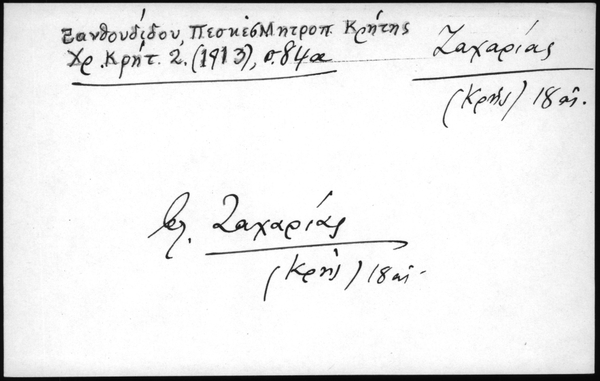 Ξανθουδίδου, Πεσκές Μητροπ. Κρήτης
Χρ. Κρήτ. 2. (1913), σ. 84α
Ζαχαρίας
(Κρής) 18 αἰ.
βλ. Ζαχαρίας
(Κρής) 18 αἰ.